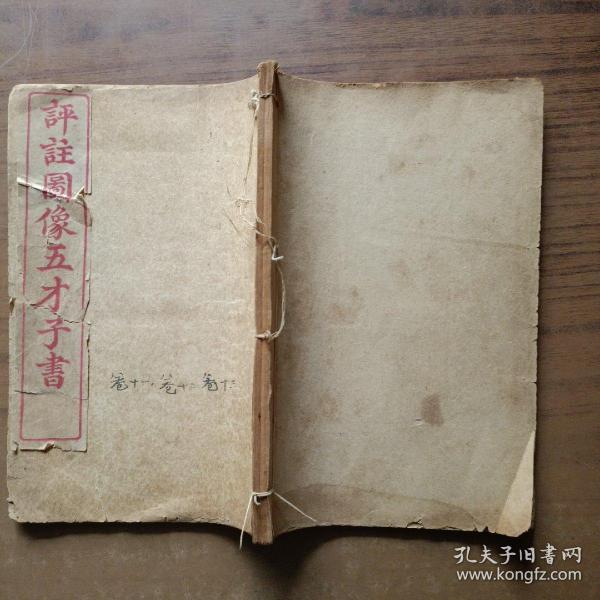 評註圖像五才子書
卷十一、卷十二 卷十三
孔夫子旧书网
www.kongfz.com